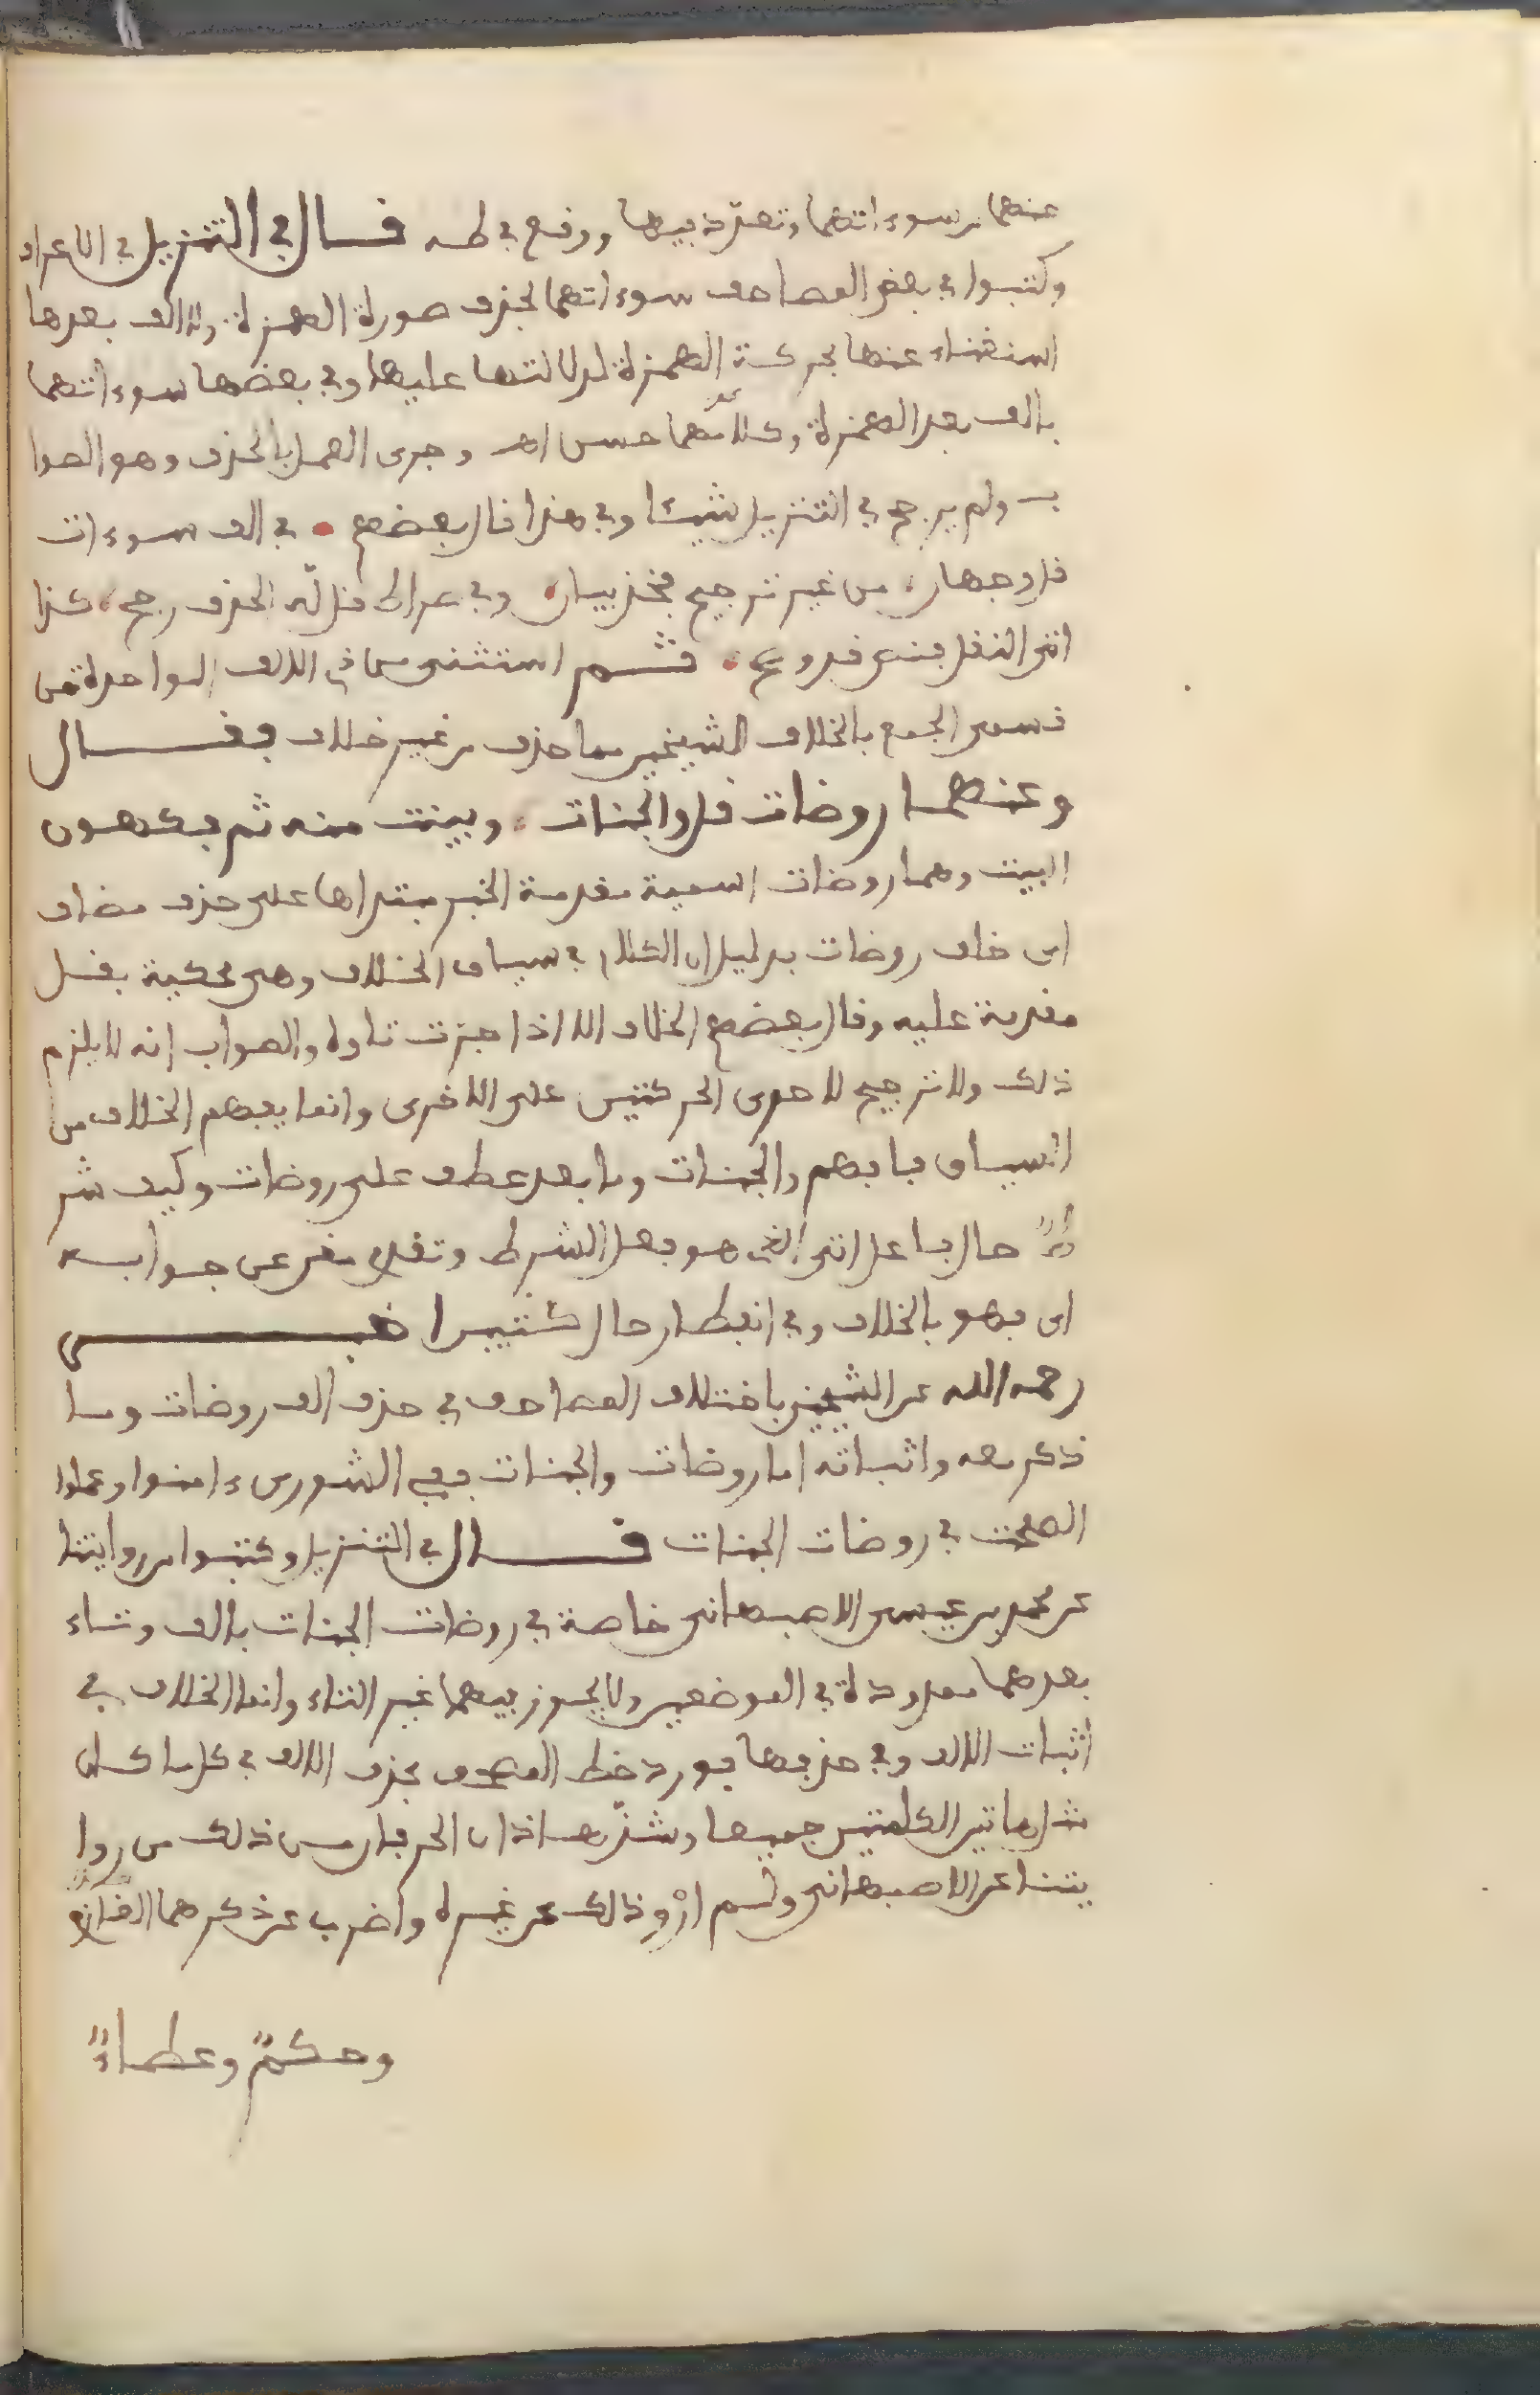 عنهما من سوءاتهما وتعدد فيها ووقع في طه قال في التنزيل في الاعراف
وكتبوا في بعض المصاحف سوءاتهما بحذف صورة الهمزة والالف بعدها
استغناء عنها بحركة الهمزة لدلالتها عليها وفي بعضها سوءاتهما
بالف بعد الهمزة وكلاهما حسن اهـ وجرى العمل بالحذف وهو الصوا
ب ولم يرجح في التنزيل شيئا وفي هذا قال بعضهم في الف سوءات
قل وجهان من غير ترجيح فخذ بيان وفي الحذف رجح كذا
اتى النقل فنعى قد وضح ثم استثنى من ذي الالف الواحدة من
قسمى الجمع بالخلاف للشيخين مما حذف من غير خلاف فقال
وعنهما روضات قل والجنات وبينت منه ثم فكهون
البيت وهما روضات اسمية مقدمة الخبر مبتداها على حذف مضاف
اى خلف روضات بدليل ان الكلام في سياق الخلاف وهي محكية بقل
مقدمة عليه وقال بعضهم الخلاف الا اذا جزت تاوه والصواب انه لا يلزم
ذلك ولا ترجيح لاحدى الحركتين على الاخرى وانما يفهم الخلاف من
السياق فافهم والجنات وما بعد عطف على روضات وكيف شر
ط حال فاعل اتى الذي هو فعل الشرط وتقدم مغن عن جوابه
اى فهو بالخلاف وفي انفطار حال كثيرا اخبــر
رحمه الله عن الشيخين باختلاف المصاحف في حذف الف روضات وما
ذكر معه واثباته اما روضات والجنات ففي الشورى ءامنوا وعملوا
الصلحت في روضات الجنات قال في التنزيل وكتبوا من روايتنا
عن محمد بن عيسى الاصبهاني خاصة في روضات الجنات بالف وتاء
بعدهما ممدودة في الموضعين ولا يجوز فيهما غير التاء وانما الخلاف في
اثبات الالف وفي حذفها فورد خط المصحف بحذف الالف في كل ما كان
مثل هاتين الكلمتين جميعا وشذ هذان الحرفان من ذلك من روا
يتنا عن الاصبهاني ولم ارو ذلك عن غيره واضرب عن ذكرهما الغازي
وحكم وعطاء